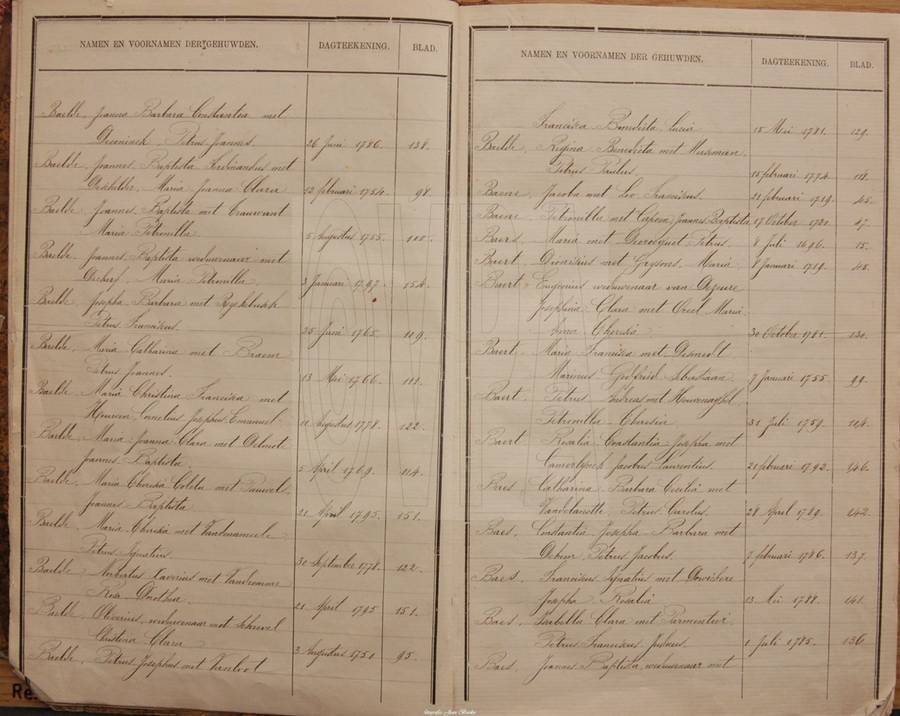 NAMEN EN VOORNAMEN DER GEHUWDEN. DAGTEEKENING. BLAD.
Baelde, Joanna Barbara Constantia met
Deeninck, Petrus Joannes. 26 Juni 1786. 138.
Baelde, Joannes Baptista Ferdinandus met
Deschilder, Maria Joanna Clara 12 februari 1754. 98.
Baelde, Joannes Baptista met
Maria Petronilla. 5 Augustus 1755. 100.
Baelde, Joannes Baptista weduwenaar met
Maria Petronilla. 3 Januari 1767. 154.
Baelde, Josepha Barbara met Ryckebusch
Petrus Franciscus. 25 Juni 1765. 109.
Baelde, Maria Catharina met Braem
Petrus Joannes. 13 Mei 1766. 111.
Baelde, Maria Christina Francisca met
Cornelius Josephus Emanuel. 11 Augustus 1778. 122.
Baelde, Maria Joanna Clara met
Joannes Baptista. 5 April 1769. 114.
Baelde, Maria Theresia Coleta met Pauwels
Joannes Baptista. 21 April 1795. 151.
Baelde, Maria Theresia met Vandenameele
Petrus Ignatius. 30 September 1778. 122.
Baelde, Norbertus Xaverius met
Rosa Dorothea. 21 April 1795 151.
Baelde, Oliverius, weduwenaar met
Christina Clara 3 Augustus 1751 95.
Baelde, Petrus Josephus met Vanloot
NAMEN EN VOORNAMEN DER GEHUWDEN. DAGTEEKENING. BLAD.
Francisca Benedicta Lucia 15 Mei 1781. 129.
Baelde, Regina Benedicta met Huysman
Petrus Paulus. 15 februari 1774. 118.
Baene, Jacoba met Leo Franciscus. 21 februari 1719. 45.
Baene, Petronilla met Capon, Joannes Baptista 17 October 1720. 47.
Baers, Maria met Petrus. 8 Juli 1696. 15.
Baert, Dionisius met Gryson, Maria 8 Januari 1719. 45.
Baert, Eugenius weduwenaar van
Josephina Clara met Maria
Anna Theresia 30 October 1781. 130.
Baert, Maria Francisca met Desmedt
Marinus Godfried Sebastiaan. 7 Januari 1755 99.
Baert, Petrus Andreas met Hauwenaghel
Petronilla Theresia 31 Juli 1759. 104.
Baert, Rosalia Constantia Josepha met
Camerlynck Jacobus Laurentius. 21 februari 1792. 146.
Baes, Catharina Barbara Cecilia met
Vandelanotte, Petrus Carolus. 28 April 1789. 142.
Baes, Constantia Josepha Barbara met
Petrus Jacobus. 7 februari 1786. 137.
Baes, Franciscus Ignatius met
Josepha Rosalia 13 Mei 1788. 141.
Baes, Isabella Clara met Parmentier
Petrus Franciscus 1 Juli 1785. 136.
Baes, Joannes Baptista, weduwenaar met